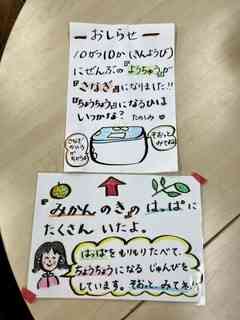 おしらせ
10がつ10か(きんようび)
にぜんぶの『ようちゅう』が
『さなぎ』になりました!!
『ちょうちょう』になるひは
いつかな? たのしみ
そおっと
みてね
『みかんのき』の『はっぱ』に
たくさん いたよ。
はっぱをもりもりたべて、
ちょうちょうになる じゅんびを
しています。そおっと、みてネ!